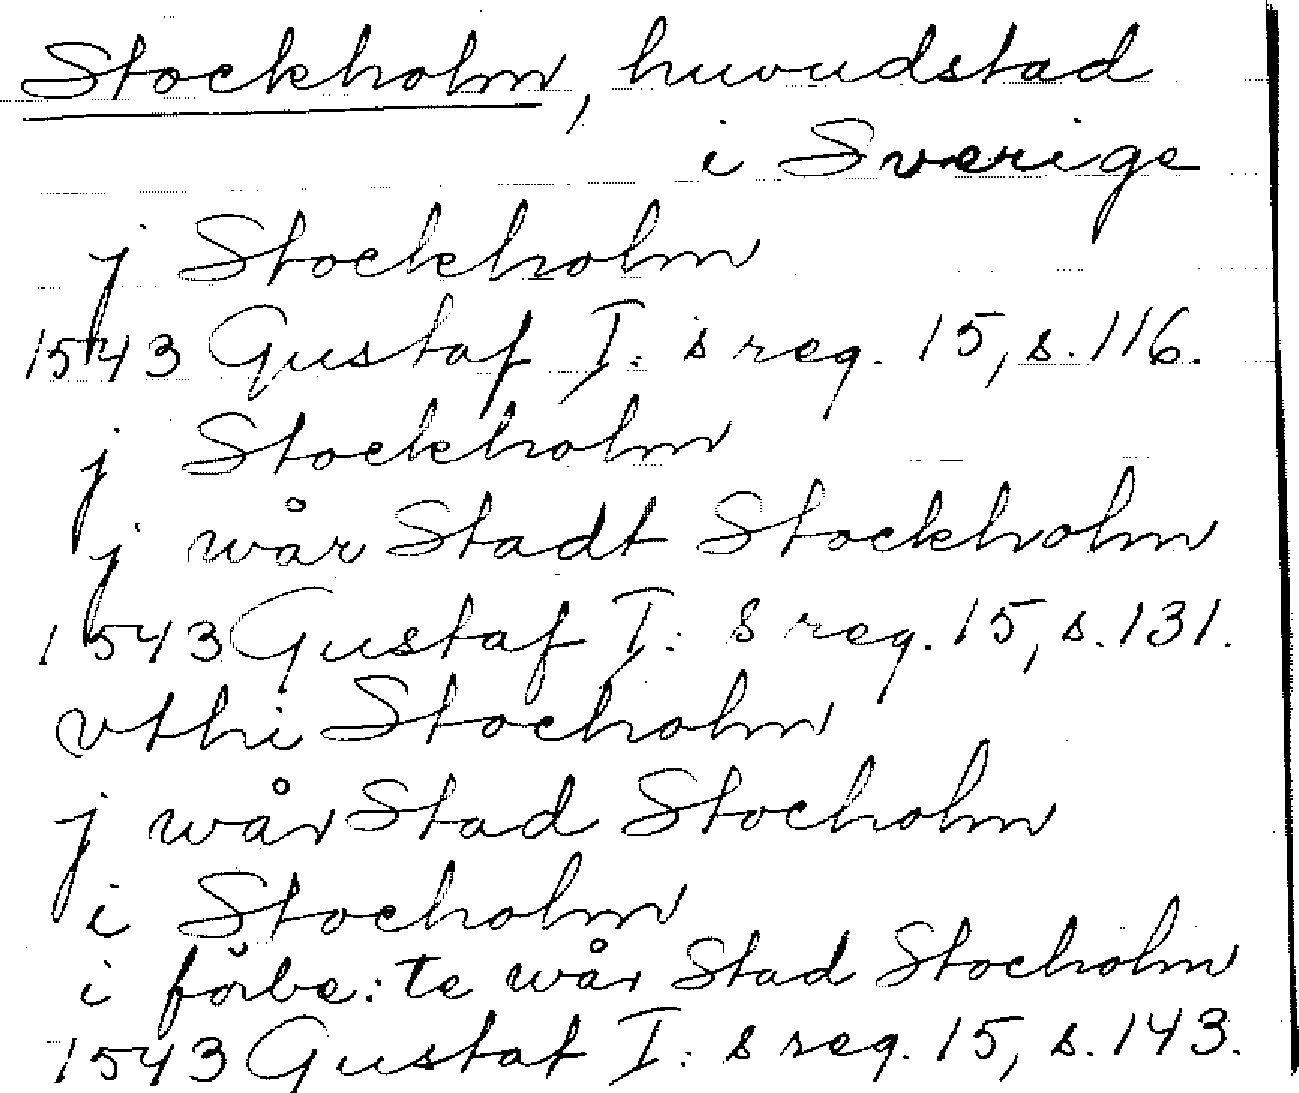 Stockholm, huvudstad
i Sverige
j Stockholm
1543 Gustaf I: s reg. 15, s. 116.
j Stockholm
j wår Stadt Stockholm
1543 Gustaf I: s reg. 15, s. 131.
vthi Stocholm
j wår Stad Stocholm
i Stocholm
i förbe:te wår Stad Stocholm
1543 Gustaf I: s reg. 15, s. 143.